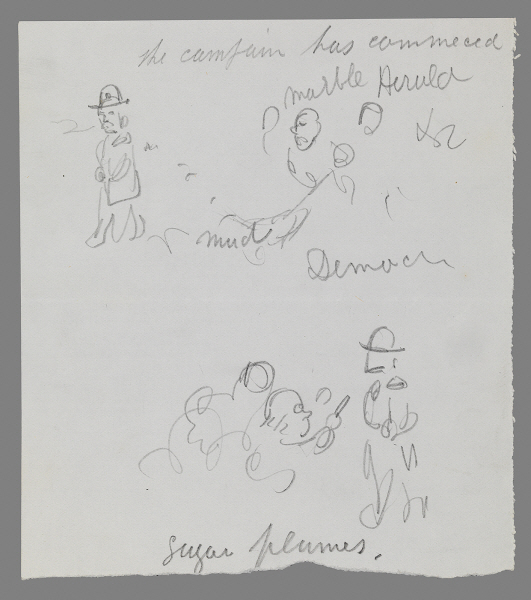 the campain has commeced
marble Herald
mud
Democ
sugar plumes.